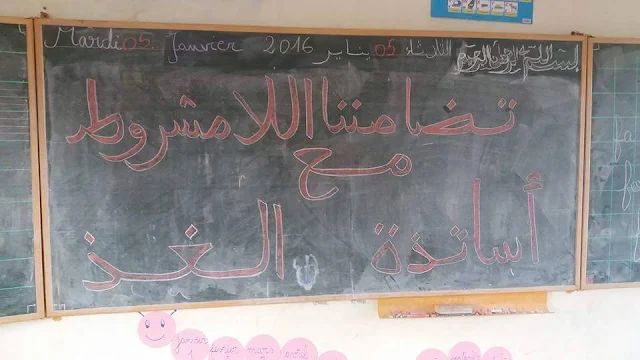 Mardi 05 Janvier 2016 يناير 05 الثلاثاء بسم الله الرحمن الرحيم
تضامننا اللامشروط
مع
أساتذة الغد
janvier février mars avril